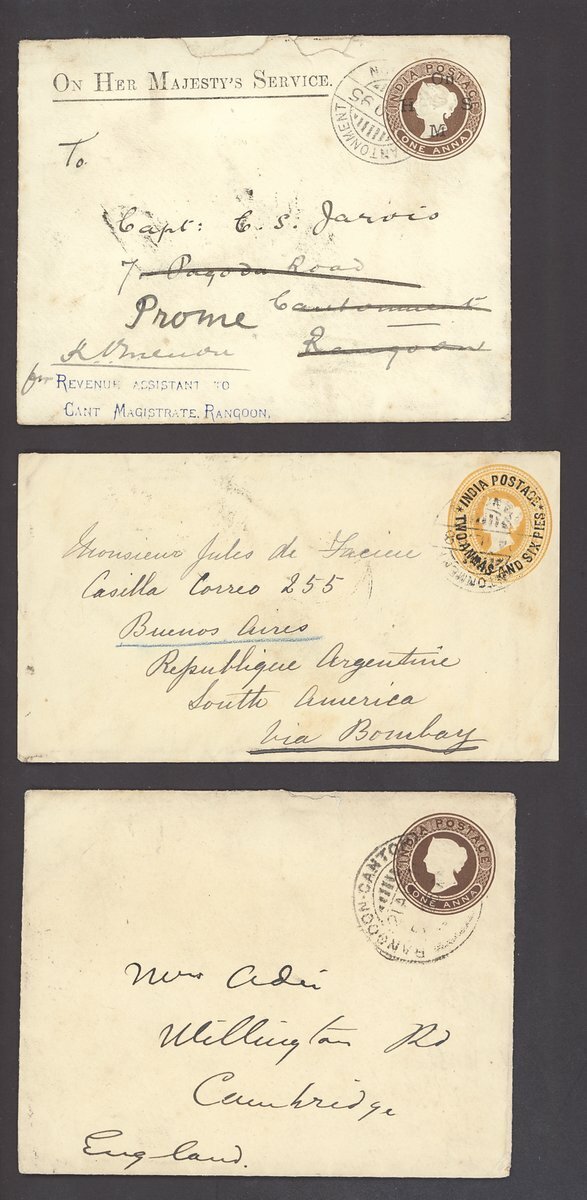 ON HER MAJESTY'S SERVICE.
INDIA POSTAGE
ON
H S
M
ONE ANNA
CANTONMENT
95
To
Capt: C. S. Jarvis
7, Pagoda Road
Cantonment
Prome
Rangoon
for REVENUE ASSISTANT TO
CANT MAGISTRATE, RANGOON.
INDIA POSTAGE
TWO ANNAS AND SIX PIES
Monsieur Jules de
Casilla Correo 255
Buenos Aires
Republique Argentine
South America
Via Bombay
INDIA POSTAGE
ONE ANNA
RANGOON-CANTO
Willington Rd
Cambridge
England.